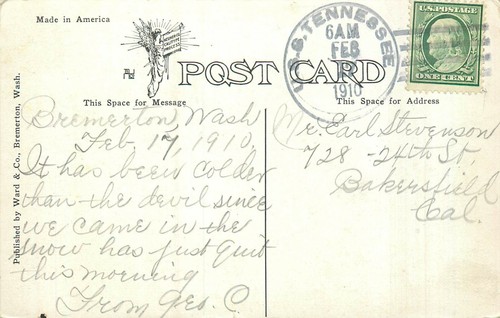 Made in America
POST CARD
U.S.S. TENNESSEE
6AM
FEB
1910
U.S. POSTAGE
ONE CENT
This Space for Message
This Space for Address
Published by Ward & Co., Bremerton, Wash.
Bremerton, Wash
Feb. 17, 1910,
It has been colder
than the devil since
we came in the
snow has just quit
this morning
From Geo. C.
Mr. Earl Stevenson
728 - 24th St,
Bakersfield
Cal.